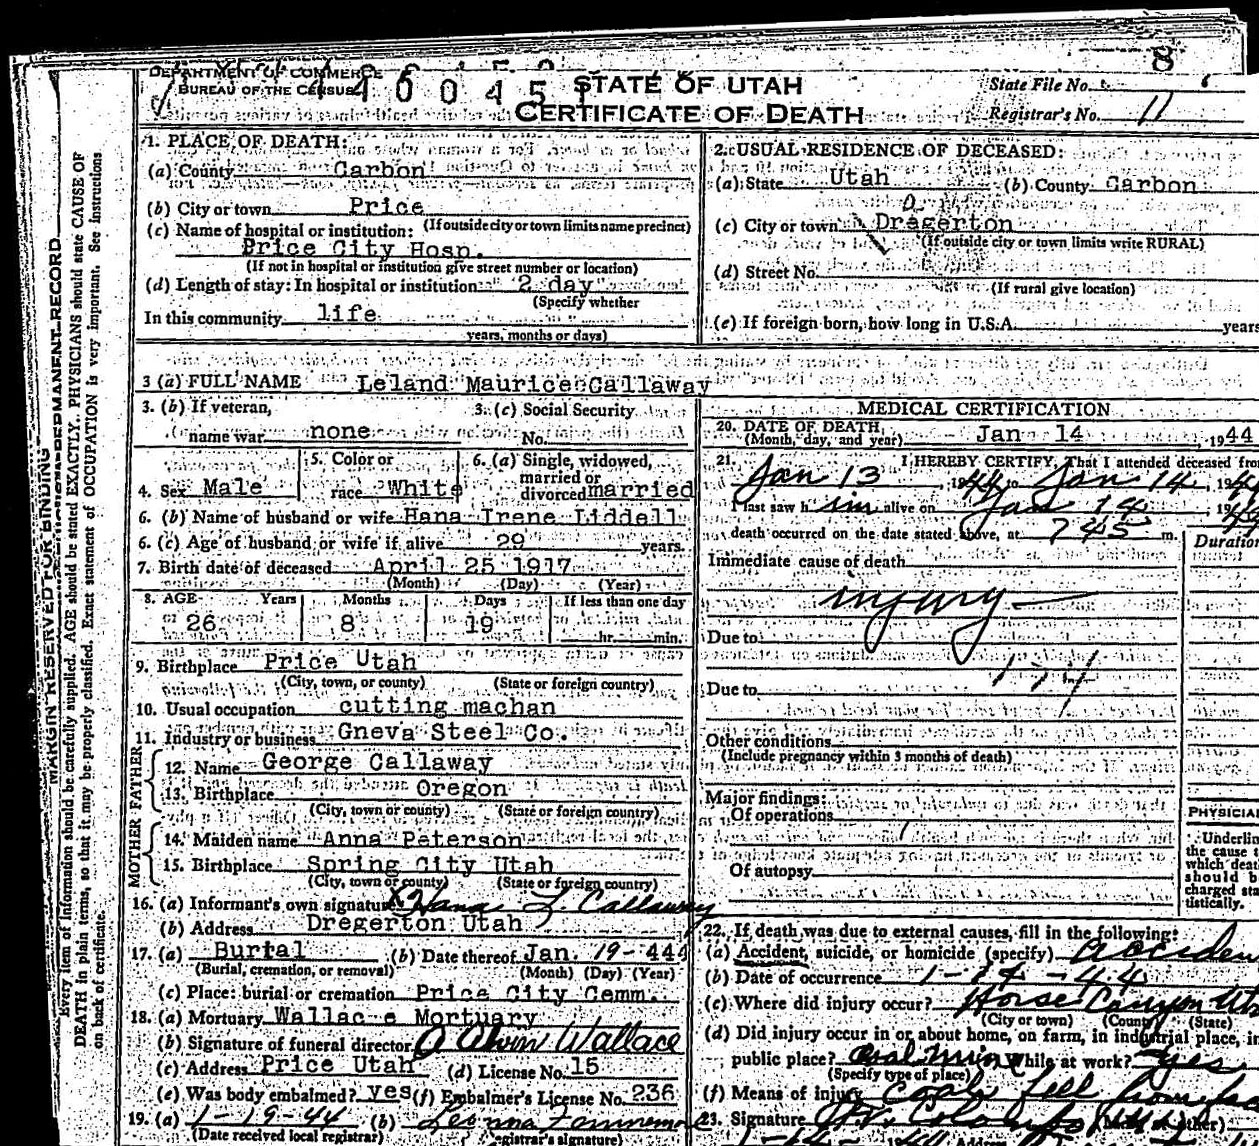 DEPARTMENT OF COMMERCE
BUREAU OF THE CENSUS
STATE OF UTAH
CERTIFICATE OF DEATH
8
State File No.
Registrar's No. 11
MARGIN RESERVED FOR BINDING
Every item of information should be carefully supplied. AGE should be stated EXACTLY. PHYSICIANS should state CAUSE OF
DEATH in plain terms, so that it may be properly classified. Exact statement of OCCUPATION is very important. See instructions
on back of certificate.
1. PLACE OF DEATH:
(a) County Carbon
(b) City or town Price
(If outside city or town limits name precinct)
(c) Name of hospital or institution:
Price City Hosp.
(If not in hospital or institution give street number or location)
(d) Length of stay: In hospital or institution 2 day
(Specify whether
In this community life
years, months or days)
2. USUAL RESIDENCE OF DECEASED:
(a) State Utah (b) County Carbon
(c) City or town Dregerton
(If outside city or town limits write RURAL)
(d) Street No.
(If rural give location)
(e) If foreign born, how long in U.S.A. years
3 (a) FULL NAME Leland Maurice Callaway
3. (b) If veteran, name war none
3. (c) Social Security No.
4. Sex Male
5. Color or race White
6. (a) Single, widowed, married or divorced married
6. (b) Name of husband or wife Hana Irene Liddell
6. (c) Age of husband or wife if alive 29 years.
7. Birth date of deceased April 25 1917
(Month) (Day) (Year)
8. AGE Years Months Days If less than one day
26 8 19 hr. min.
9. Birthplace Price Utah
(City, town, or county) (State or foreign country)
10. Usual occupation cutting machan
11. Industry or business Gneva Steel Co.
FATHER
12. Name George Callaway
13. Birthplace Oregon
(City, town or county) (State or foreign country)
MOTHER
14. Maiden name Anna Peterson
15. Birthplace Spring City Utah
(City, town or county) (State or foreign country)
16. (a) Informant's own signature X Hana I. Callaway
(b) Address Dregerton Utah
17. (a) Burial (b) Date thereof Jan. 19-444
(Burial, cremation, or removal) (Month) (Day) (Year)
(c) Place: burial or cremation Price City Cemm.
18. (a) Mortuary Wallac e Mortuary
(b) Signature of funeral director Wallace
(c) Address Price Utah (d) License No. 15
(e) Was body embalmed? yes (f) Embalmer's License No. 236
19. (a) 1-19-44 (b)
(Date received local registrar) Registrar's signature)
MEDICAL CERTIFICATION
20. DATE OF DEATH,
(Month, day, and year) Jan 14, 1944
21. I HEREBY CERTIFY, That I attended deceased from
Jan 13, 1944 to Jan 14, 19
I last saw him alive on Jan 14, 19
death occurred on the date stated above, at 745 m.
Duration
Immediate cause of death
injury
Due to
Due to
Other conditions
(Include pregnancy within 3 months of death)
Major findings:
Of operations
Of autopsy
PHYSICIA
Underlin
the cause t
which deat
should b
charged sta
tistically.
22. If death was due to external causes, fill in the following:
(a) Accident, suicide, or homicide (specify) acciden
(b) Date of occurrence 1-14-44
(c) Where did injury occur? Horse Canyon Uta
(City or town) (County) (State)
(d) Did injury occur in or about home, on farm, in industrial place, in
public place? Coal mine While at work? yes
(Specify type of place)
(f) Means of injury Coal fell from
23. Signature